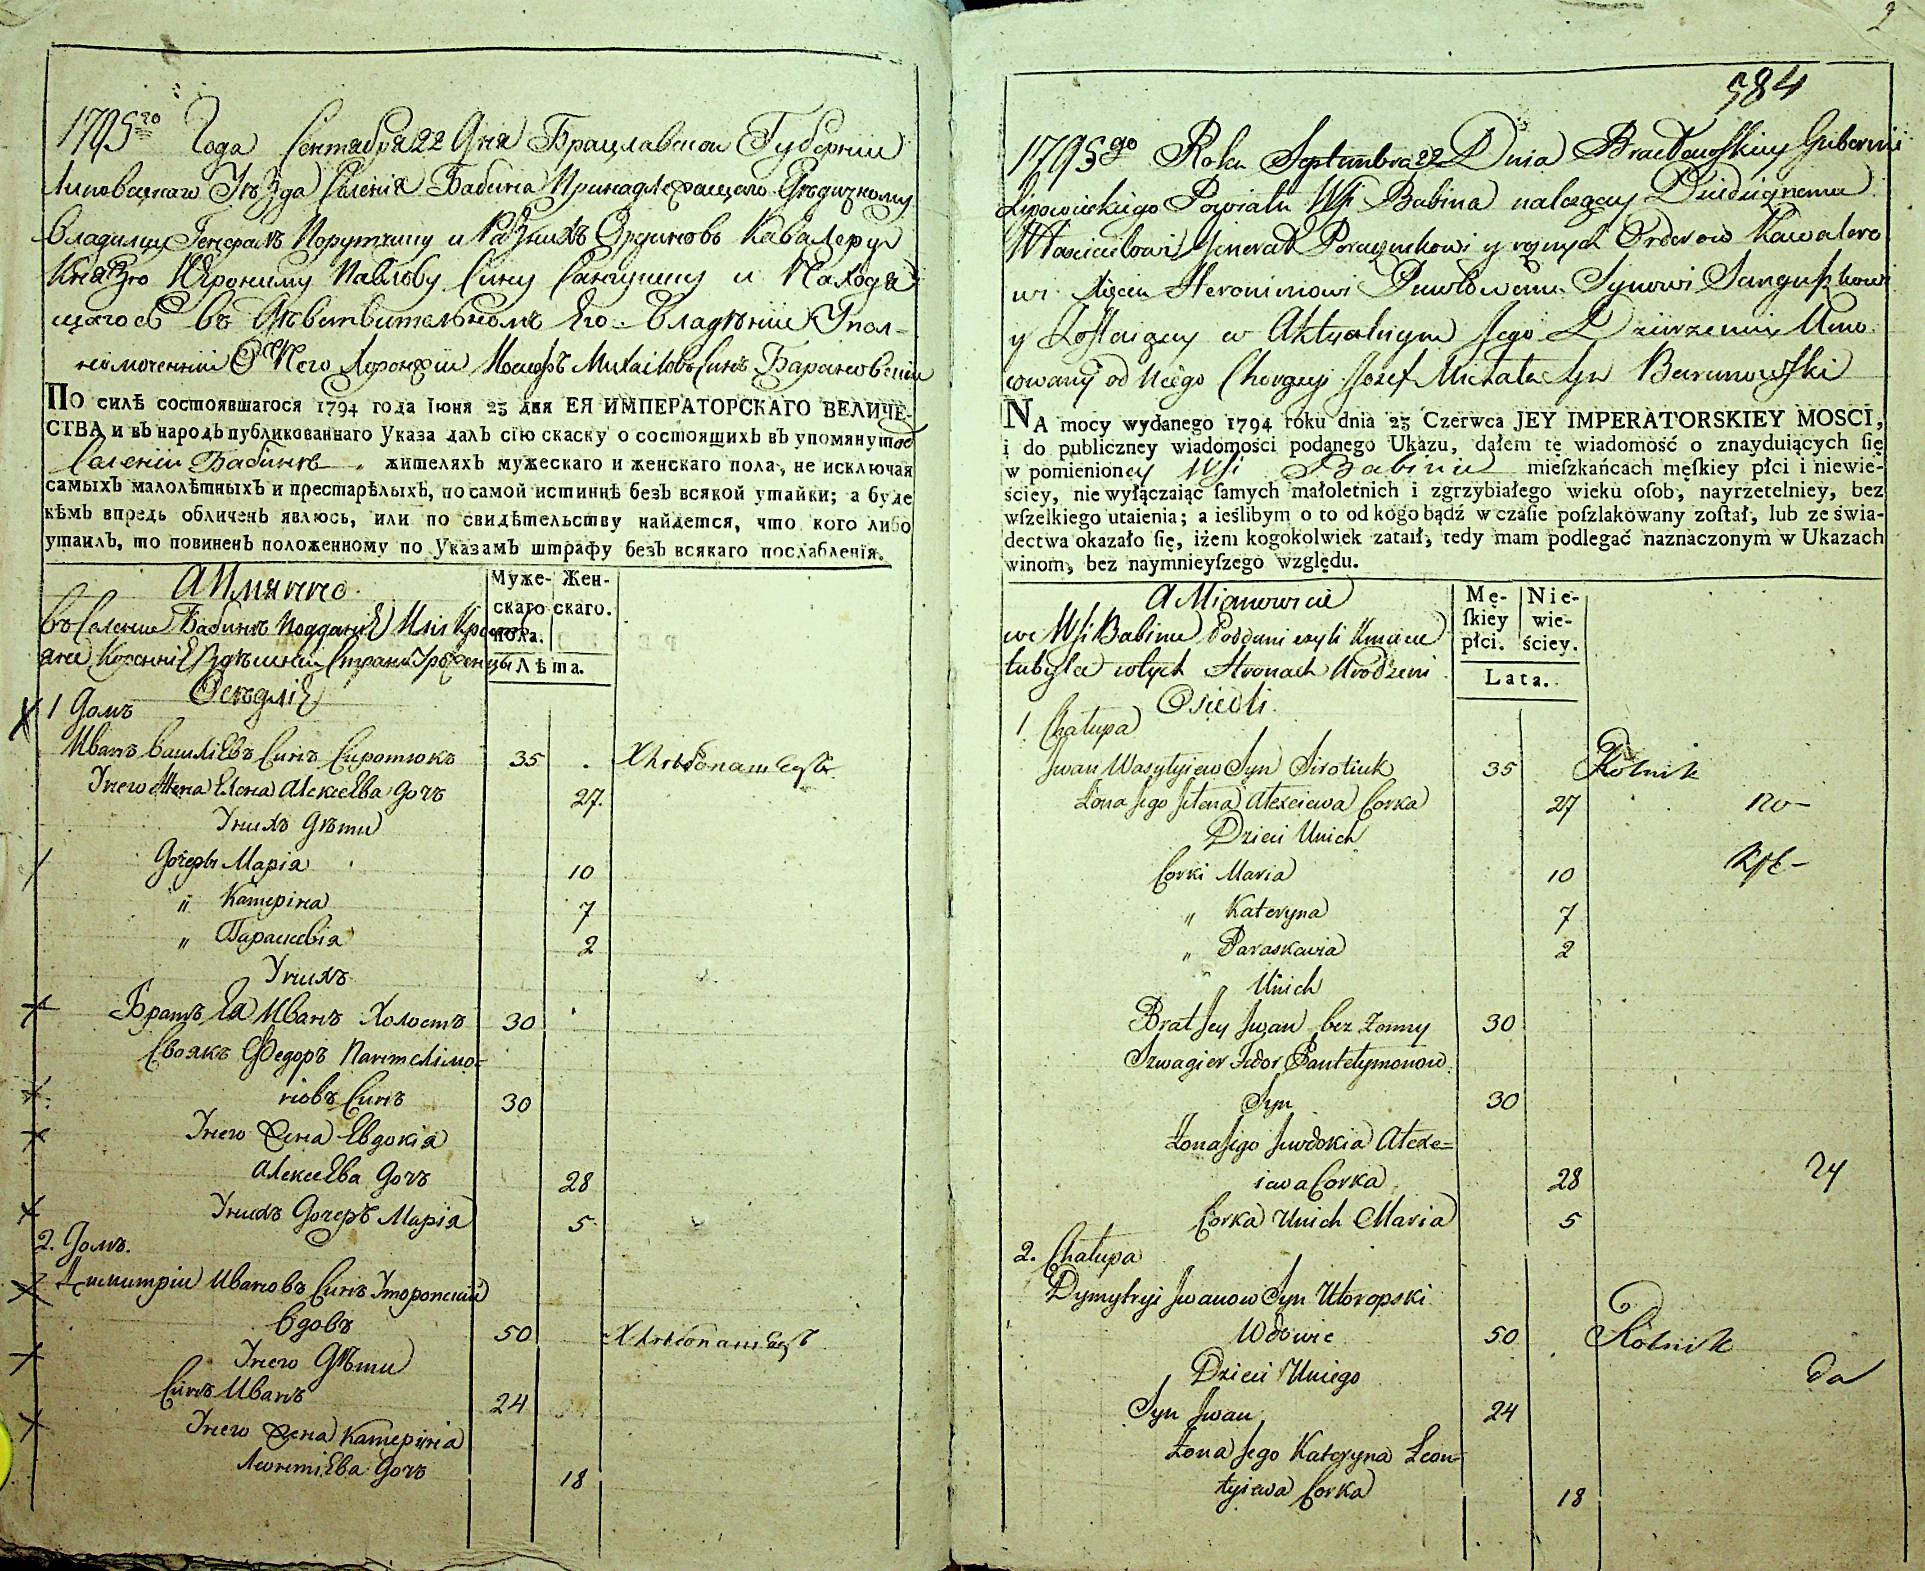 1795го Года Сентября 22 Дня Брацлавской Губернии
Липовацкаго Уѣзда Селенія Бабина Принадлежащаго Едѣдичному
Владѣлцу Генералъ Порутчику и Разныхъ Орденовъ Кавалеру
Князю Иерониму Павлову Сину Сангушку и Находя
щагось въ Дѣствительномъ Его Владѣніи Упол-
номоченній О Него Хоронжіи Иосифъ Михаиловъ Синъ Барановскіи
ПО силѣ состоявшагося 1794 года Iюня 23 дня ЕЯ ИМПЕРАТОРСКАГО ВЕЛИЧЕ-
СТВА и въ народъ публикованнаго Указа далъ сію скаску о состоящихъ въ упомянутой
Селеніи Бабинѣ жителяхъ мужескаго и женскаго пола, не исключая
самыхъ малолѣтныхъ и престарѣлыхъ, по самой истиннѣ безъ всякой утайки; а буде
кѣмъ впредь обличенъ явлюсь, или по свидѣтельству найдется, что кого либо
утаилъ, то повиненъ положенному по Указамъ штрафу безъ всякаго послабленія.
А Имянно
Муже- Жен-
скаго скаго.
пола.
Лѣта.
въ Селеніи Бабинѣ Подданіе Или Крестя
Осѣдліе
1 Домъ
Иванъ Василіевъ Синъ Сиротюкъ 35
У него Жена Елена Алексеева Дочъ 27
У нихъ Дѣти
Дочеръ Марія 10
" Катеріна 7
" Параскевія 2
У нихъ
Братъ Ея Иванъ Холостъ 30
Своякъ Федоръ Пантелімо-
новъ Синъ 30
У него Жена Евдокія
Алексеева Дочъ 28
У нихъ Дочеръ Марія 5
2. Домъ.
Димитріи Ивановъ Синъ Уторопскій
Вдовъ 50
У него Дѣти
Синъ Иванъ 24
У него Жена Катеріна
Леонтіева Дочъ 18
2
584
1795go Roku Septembra 22 Dnia Bracławskiey Gubernii
Lipowieckiego Powiatu Wsi Babina należącey Dziedzicznemu
Włascicielowi Jenerał Porucznikowi y roznych Orderow Kawalero
wi Xięciu Heronimowi Pawłowemu Synowi Sanguszkowi
y Zostaiącey w Aktualnym Jego Dzierzeniu Umo
cowany od Niego Chorąży Jozef Michała Syn Baranowski
NA mocy wydanego 1794 roku dnia 23 Czerwca JEY IMPERATORSKIEY MOSCI,
i do publiczney wiadomości podanego Ukazu, dałem tę wiadomość o znayduiących ſię
w pomienioney Wsi Babinie mieſzkańcach męſkiey płci i niewie-
ściey, nie wyłączaiąc ſamych małoletnich i zgrzybiałego wieku oſob, nayrzetelniey, bez
wſzelkiego utaienia; a ieślibym o to od kogo bądź w czaſie poſzlakowany zoſtał, lub ze świa-
dectwa okazało ſię, iżem kogokolwiek zataił, tedy mam podlegać naznaczonym w Ukazach
winom, bez naymnieyſzego względu.
A Mianowicie
Mę- Nie-
ſkiey wie-
płci. ściey.
Lata.
we Wsi Babinie Poddani czyli Kmiecie
tubylcy wtych Stronach Urodzeni
Osiedli.
1. Chałupa
Jwan Wasylyiew Syn Sirotiuk 35 Rolnik
Zona Jego Jelena Alexiejewa Corka 27
Dzieci Unich
Corki Maria 10
" Kateryna 7
" Paraskawia 2
Unich
Brat Jey Jwan bez Zonny 30
Szwagier Fedor Pantelymonow
Syn 30
Zona Jego Jewdokia Alexe=
iewa Corka 28
Corka Unich Maria 5
24
2. Chałupa
Dymytryi Jwanow Syn Utoropski
Wdowiec 50 Rolnik
Dzieci Uniego
da
Syn Jwan 24
Zona Jego Kateryna Leon-
tyiewa Corka 18